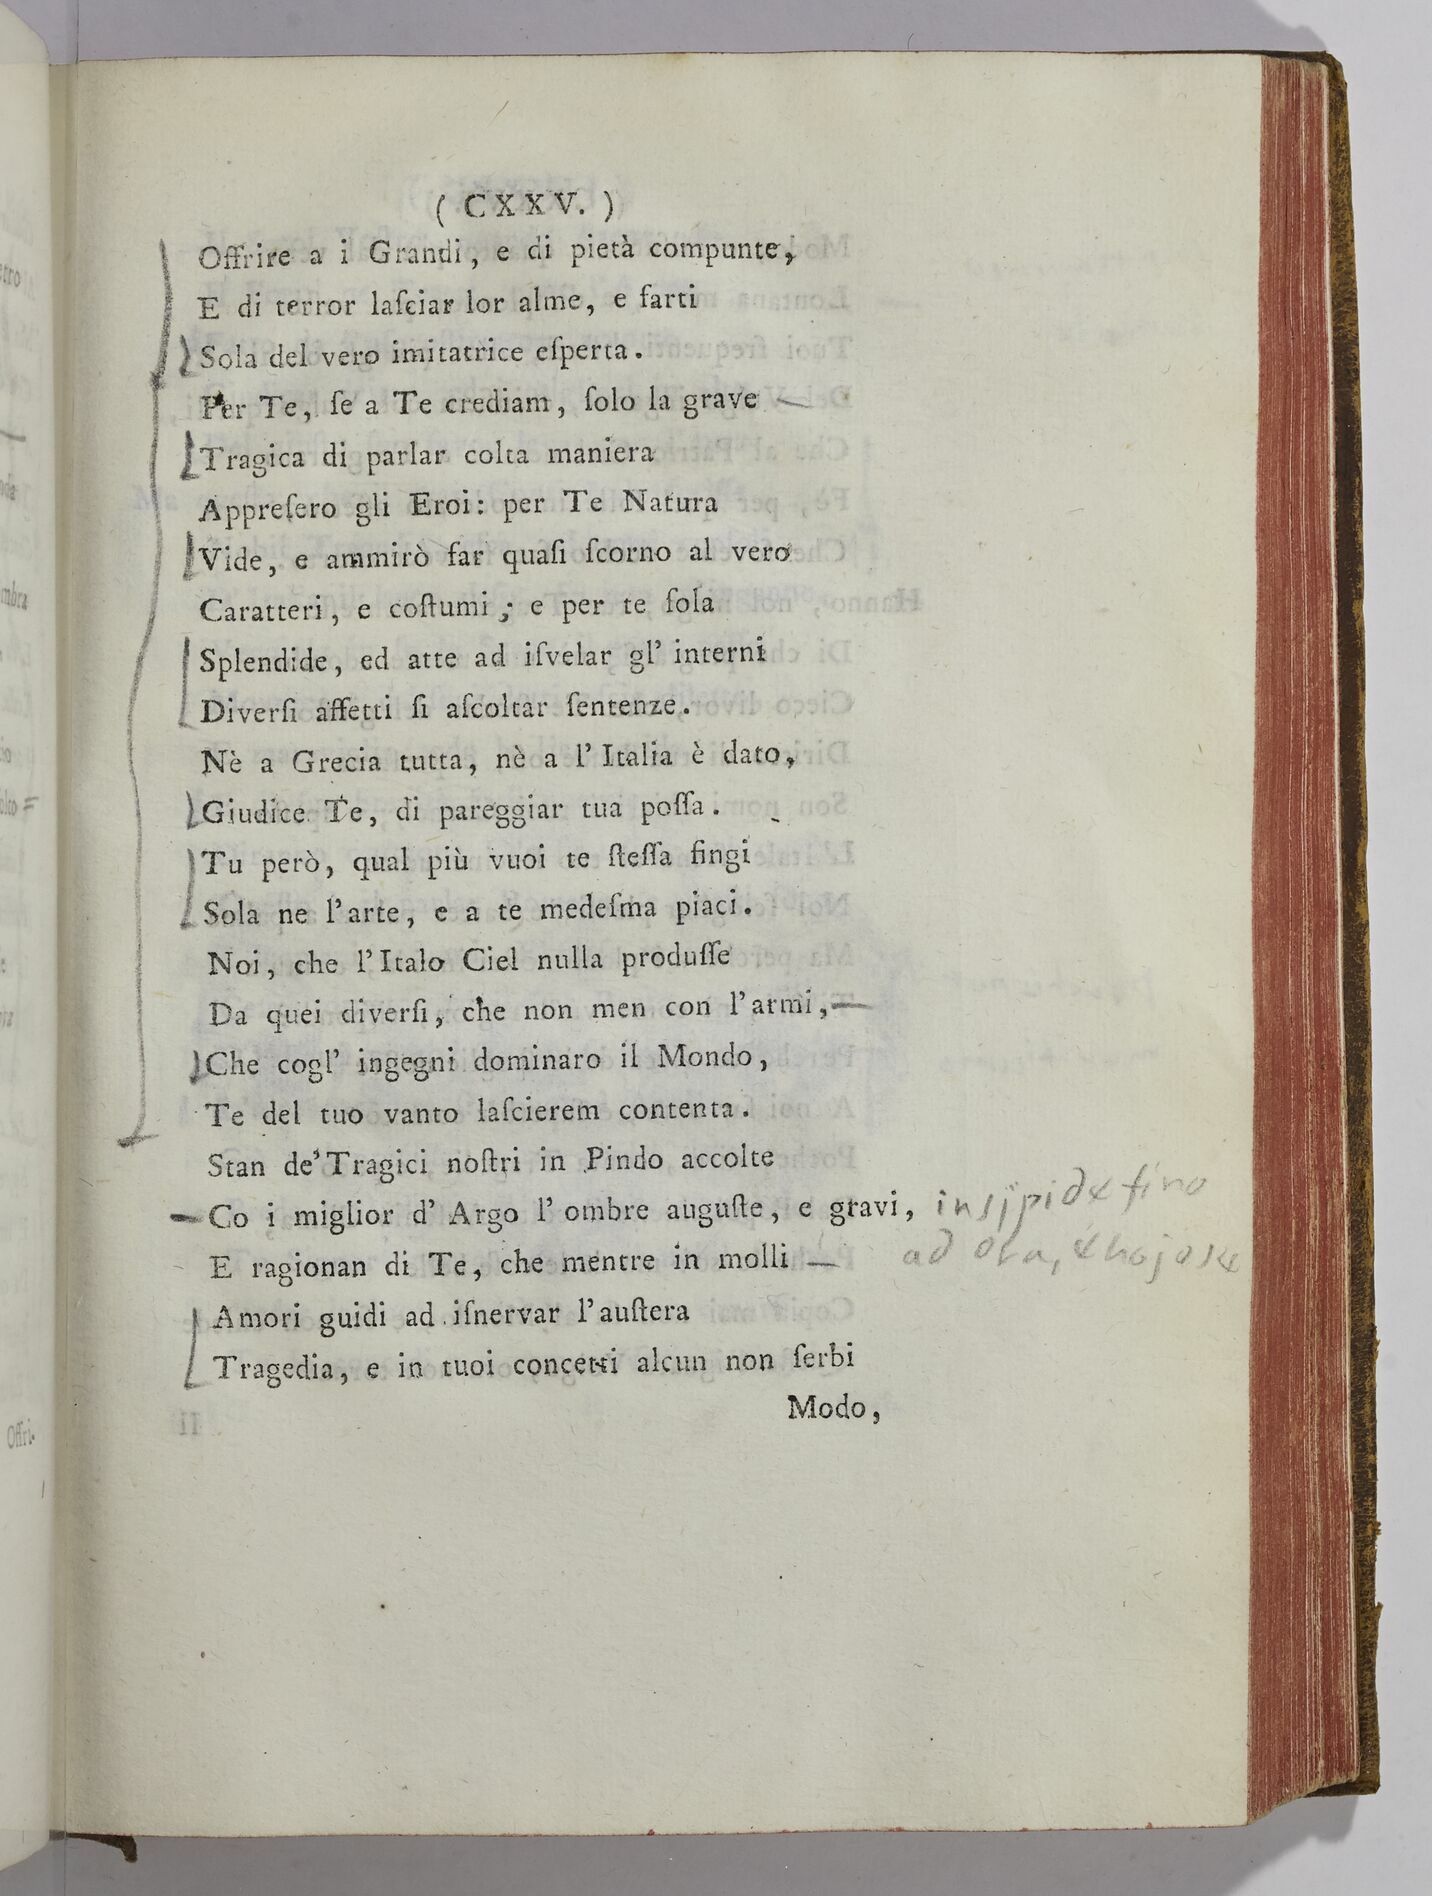 ( CXXV. )
Offrire a i Grandi, e di pietà compunte,
E di terror laſciar lor alme, e farti
Sola del vero imitatrice eſperta.
Per Te, ſe a Te crediam, ſolo la grave
Tragica di parlar colta maniera
Appreſero gli Eroi: per Te Natura
Vide, e ammirò far quaſi ſcorno al vero
Caratteri, e coſtumi; e per te ſola
Splendide, ed atte ad iſvelar gl' interni
Diverſi affetti ſi aſcoltar ſentenze.
Nè a Grecia tutta, nè a l'Italia è dato,
Giudice Te, di pareggiar tua poſſa.
Tu però, qual più vuoi te ſteſſa fingi
Sola ne l'arte, e a te medeſma piaci.
Noi, che l'Italo Ciel nulla produſſe
Da quei diverſi, che non men con l'armi,
Che cogl' ingegni dominaro il Mondo,
Te del tuo vanto laſcierem contenta.
Stan de' Tragici noſtri in Pindo accolte
Co i miglior d' Argo l' ombre auguſte, e gravi, insipide fino
ad ora, e nojose
E ragionan di Te, che mentre in molli
Amori guidi ad iſnervar l'auſtera
Tragedia, e in tuoi concetti alcun non ſerbi
Modo,